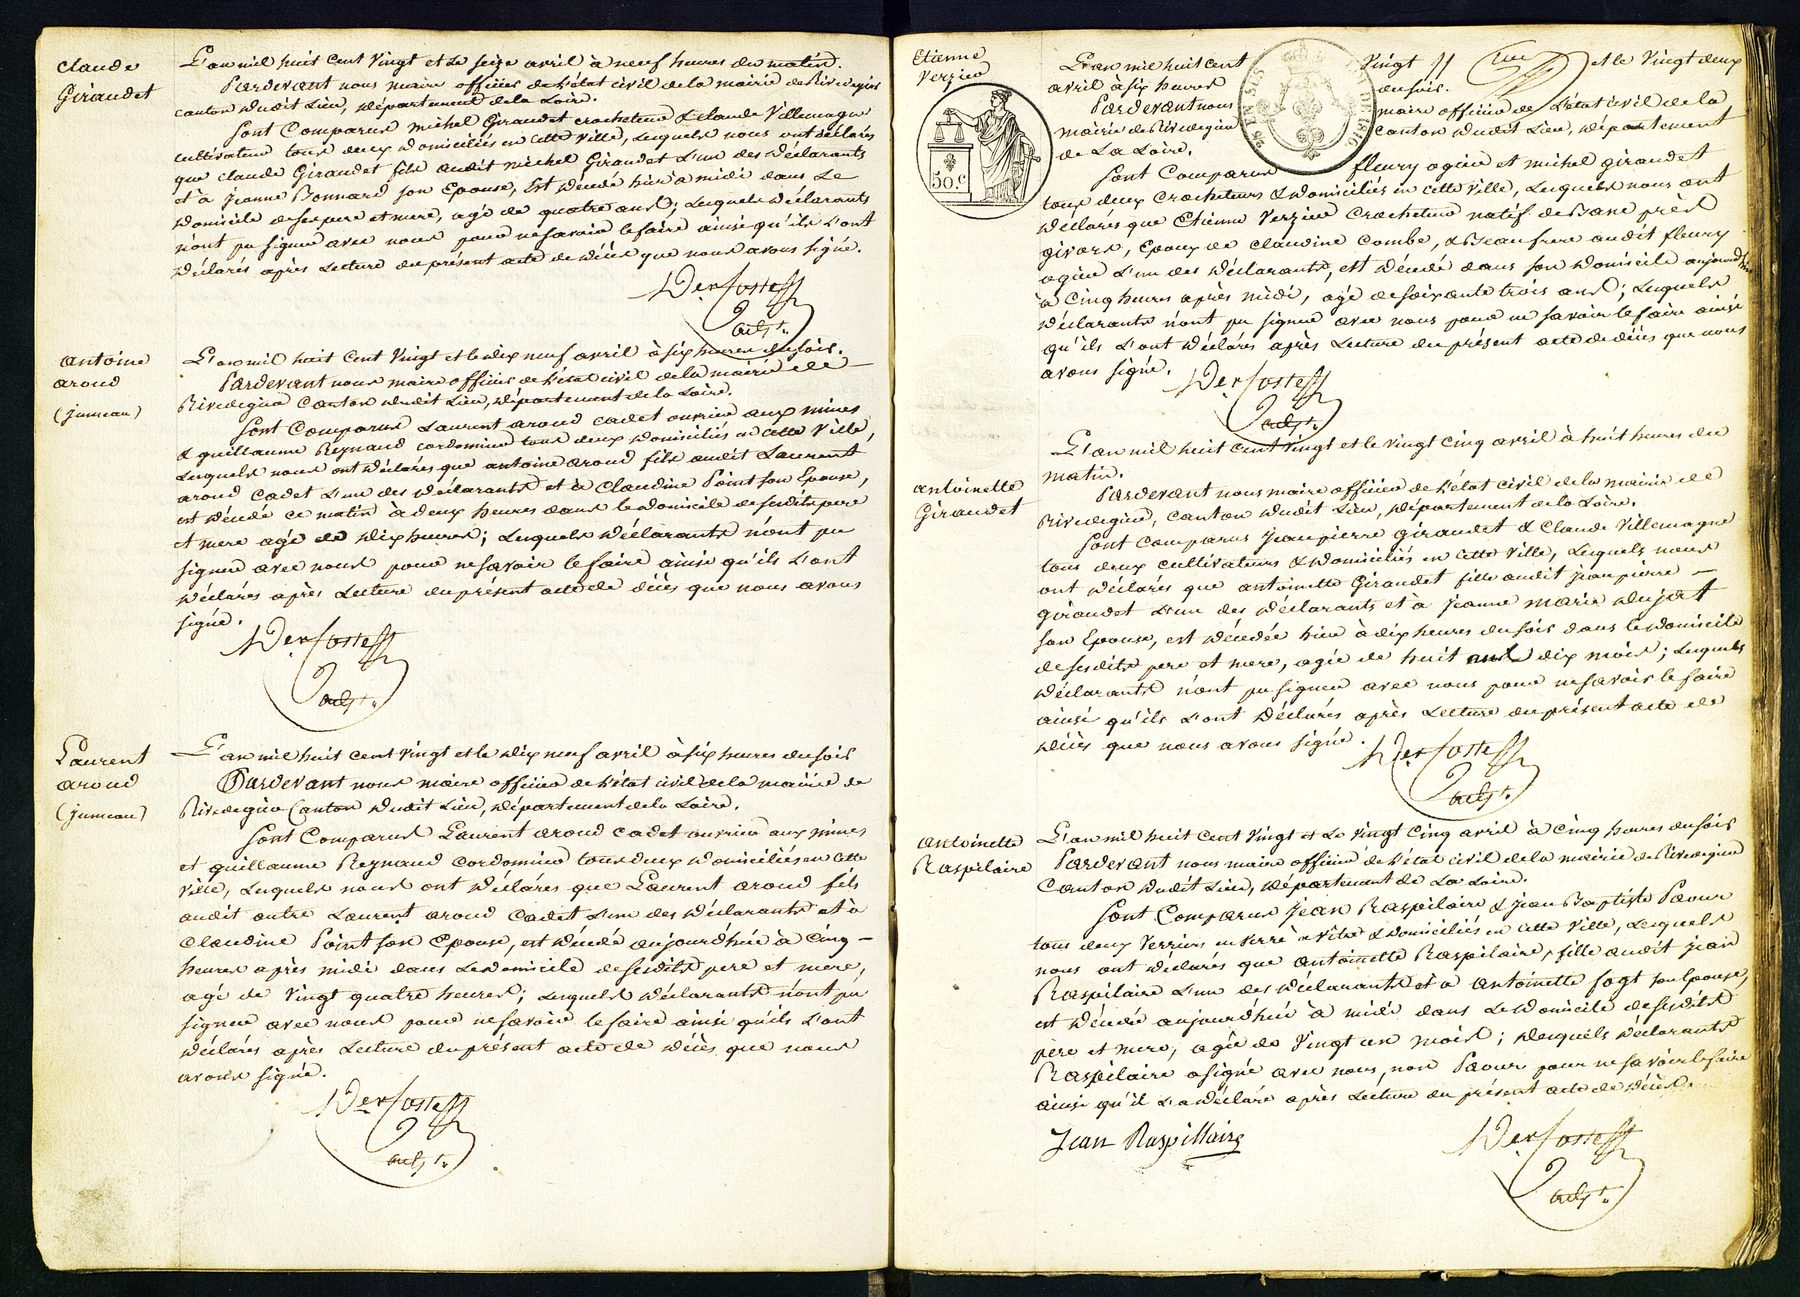 Claude
Giraudet
L'an mil huit cent vingt et le seize avril à neuf heures du matin.
Pardevant nous maire officier de l'état civil de la mairie de Rivedegier
canton dudit Lieu, département de la Loire.
Sont Comparus michel Giraudet crocheteur & Claude Villemagne
cultivateur tous deux domiciliés en cette ville, Lesquels nous ont déclarés
que claude Giraudet fils audit michel Giraudet L'un des déclarants
et à jeanne Bonnard son Epouse, Est décédé hier à midi dans Le
domicile de ses pere et mere, agé de quatre ans; Lesquels déclarants
n'ont pu signer avec nous pour ne savoir le faire ainsi qu'ils L'ont
déclarés après Lecture du présent acte de décès que nous avons signé.
antoine
aroud
(jumeau)
L'an mil huit Cent Vingt et le dix neuf avril à six heures du soir.
Pardevant nous maire officier de l'état civil de la mairie de
Rivedegier Canton dudit Lieu, département de la Loire.
Sont Comparus Laurent aroud cadet ouvrier aux mines
& guillaume Reynaud cordonnier tous deux domiciliés en cette Ville,
Lesquels nous ont déclarés que antoine aroud fils audit Laurent
aroud cadet L'un des déclarants et à Claudine Point son Epouse,
est décédé ce matin à deux heures dans le domicile de sesdits pere
et mere agé de dix heures; Lesquels déclarants n'ont pu
signer avec nous pour ne savoir le faire ainsi qu'ils L'ont
déclarés après Lecture du présent acte de décès que nous avons
signé.
Laurent
aroud
(jumeau)
L'an mil huit cent vingt et le dix neuf avril à six heures du soir
Pardevant nous maire officier de l'état civil de la mairie de
Rivedegier Canton dudit Lieu, département de la Loire.
Sont Comparus Laurent aroud cadet ouvrier aux mines
et guillaume Reynaud Cordonnier tous deux domiciliés en cette
Ville, Lesquels nous ont déclarés que Laurent aroud fils
audit autre Laurent aroud Cadet L'un des déclarants et à
Claudine Point son Epouse, est décédé aujourdhui à Cinq
heures après midi dans Le domicile de sesdits pere et mere,
agé de Vingt quatre heures; Lesquels déclarants n'ont pu
signer avec nous pour ne savoir le faire ainsi qu'ils L'ont
déclarés après Lecture du présent acte de décès que nous
avons signé.
Etienne
Verzier
50.c
L'an mil huit Cent Vingt et le Vingt deux
avril à six heures du soir.
Pardevant nous maire officier de L'état civil de la
mairie de Rivedegier Canton dudit Lieu, département
de La Loire.
Sont Comparus fleury ogier et michel giraudet
tous deux Crocheteurs & domiciliés en cette Ville, Lesquels nous ont
déclarés que Etienne Verzier Crocheteur natif de Bans près
givors, Epoux de Claudine Combe, & Beaufrere audit fleury
ogier L'un des déclarants, est décédé dans son domicile aujourdhui
à Cinq heures après midi, agé de soixante trois ans; Lesquels
déclarants n'ont pu signer avec nous pour ne savoir le faire ainsi
qu'ils L'ont déclarés après Lecture du présent acte de décès que nous
avons signé.
antoinette
Giraudet
L'an mil huit cent Vingt et le vingt Cinq avril à huit heures du
matin.
Pardevant nous maire officier de l'état civil de la mairie de
Rivedegier, canton dudit Lieu, département de la Loire.
Sont Comparus Jeanpierre giraudet & Claude Villemagne
tous deux cultivateurs & domiciliés en cette Ville, Lesquels nous
ont déclarés que antoinette Giraudet fille audit jeanpierre
giraudet L'un des déclarants et à jeanne marie dujat
son Epouse, est décédée hier à dix heures du soir dans le domicile
de sesdits pere et mere, agée de huit ans dix mois; Lesquels
déclarants n'ont pu signer avec nous pour ne savoir le faire
ainsi qu'ils L'ont déclarés après Lecture du présent acte de
décès que nous avons signé.
antoinette
Raspilaire
L'an mil huit Cent Vingt et Le Vingt Cinq avril à cinq heures du soir
Pardevant nous maire officier de l'état civil de la mairie de Rivedegier
Canton dudit Lieu, département de La Loire.
Sont Comparus Jean Raspilaire & Jean Baptiste Paour
tous deux Verriers en verre à vitre & domiciliés en cette Ville, Lesquels
nous ont déclarés que Antoinette Raspilaire, fille audit jean
Raspilaire L'un des déclarants et à antoinette fogt son Epouse,
est décédé aujourdhui à midi dans Le domicile de sesdits
pere et mere, agée de Vingt un mois; desquels déclarants
Raspilaire a signé avec nous, non Paour pour ne savoir le faire
ainsi qu'il L'a déclaré après Lecture du présent acte de décès.
Jean Raspillaire